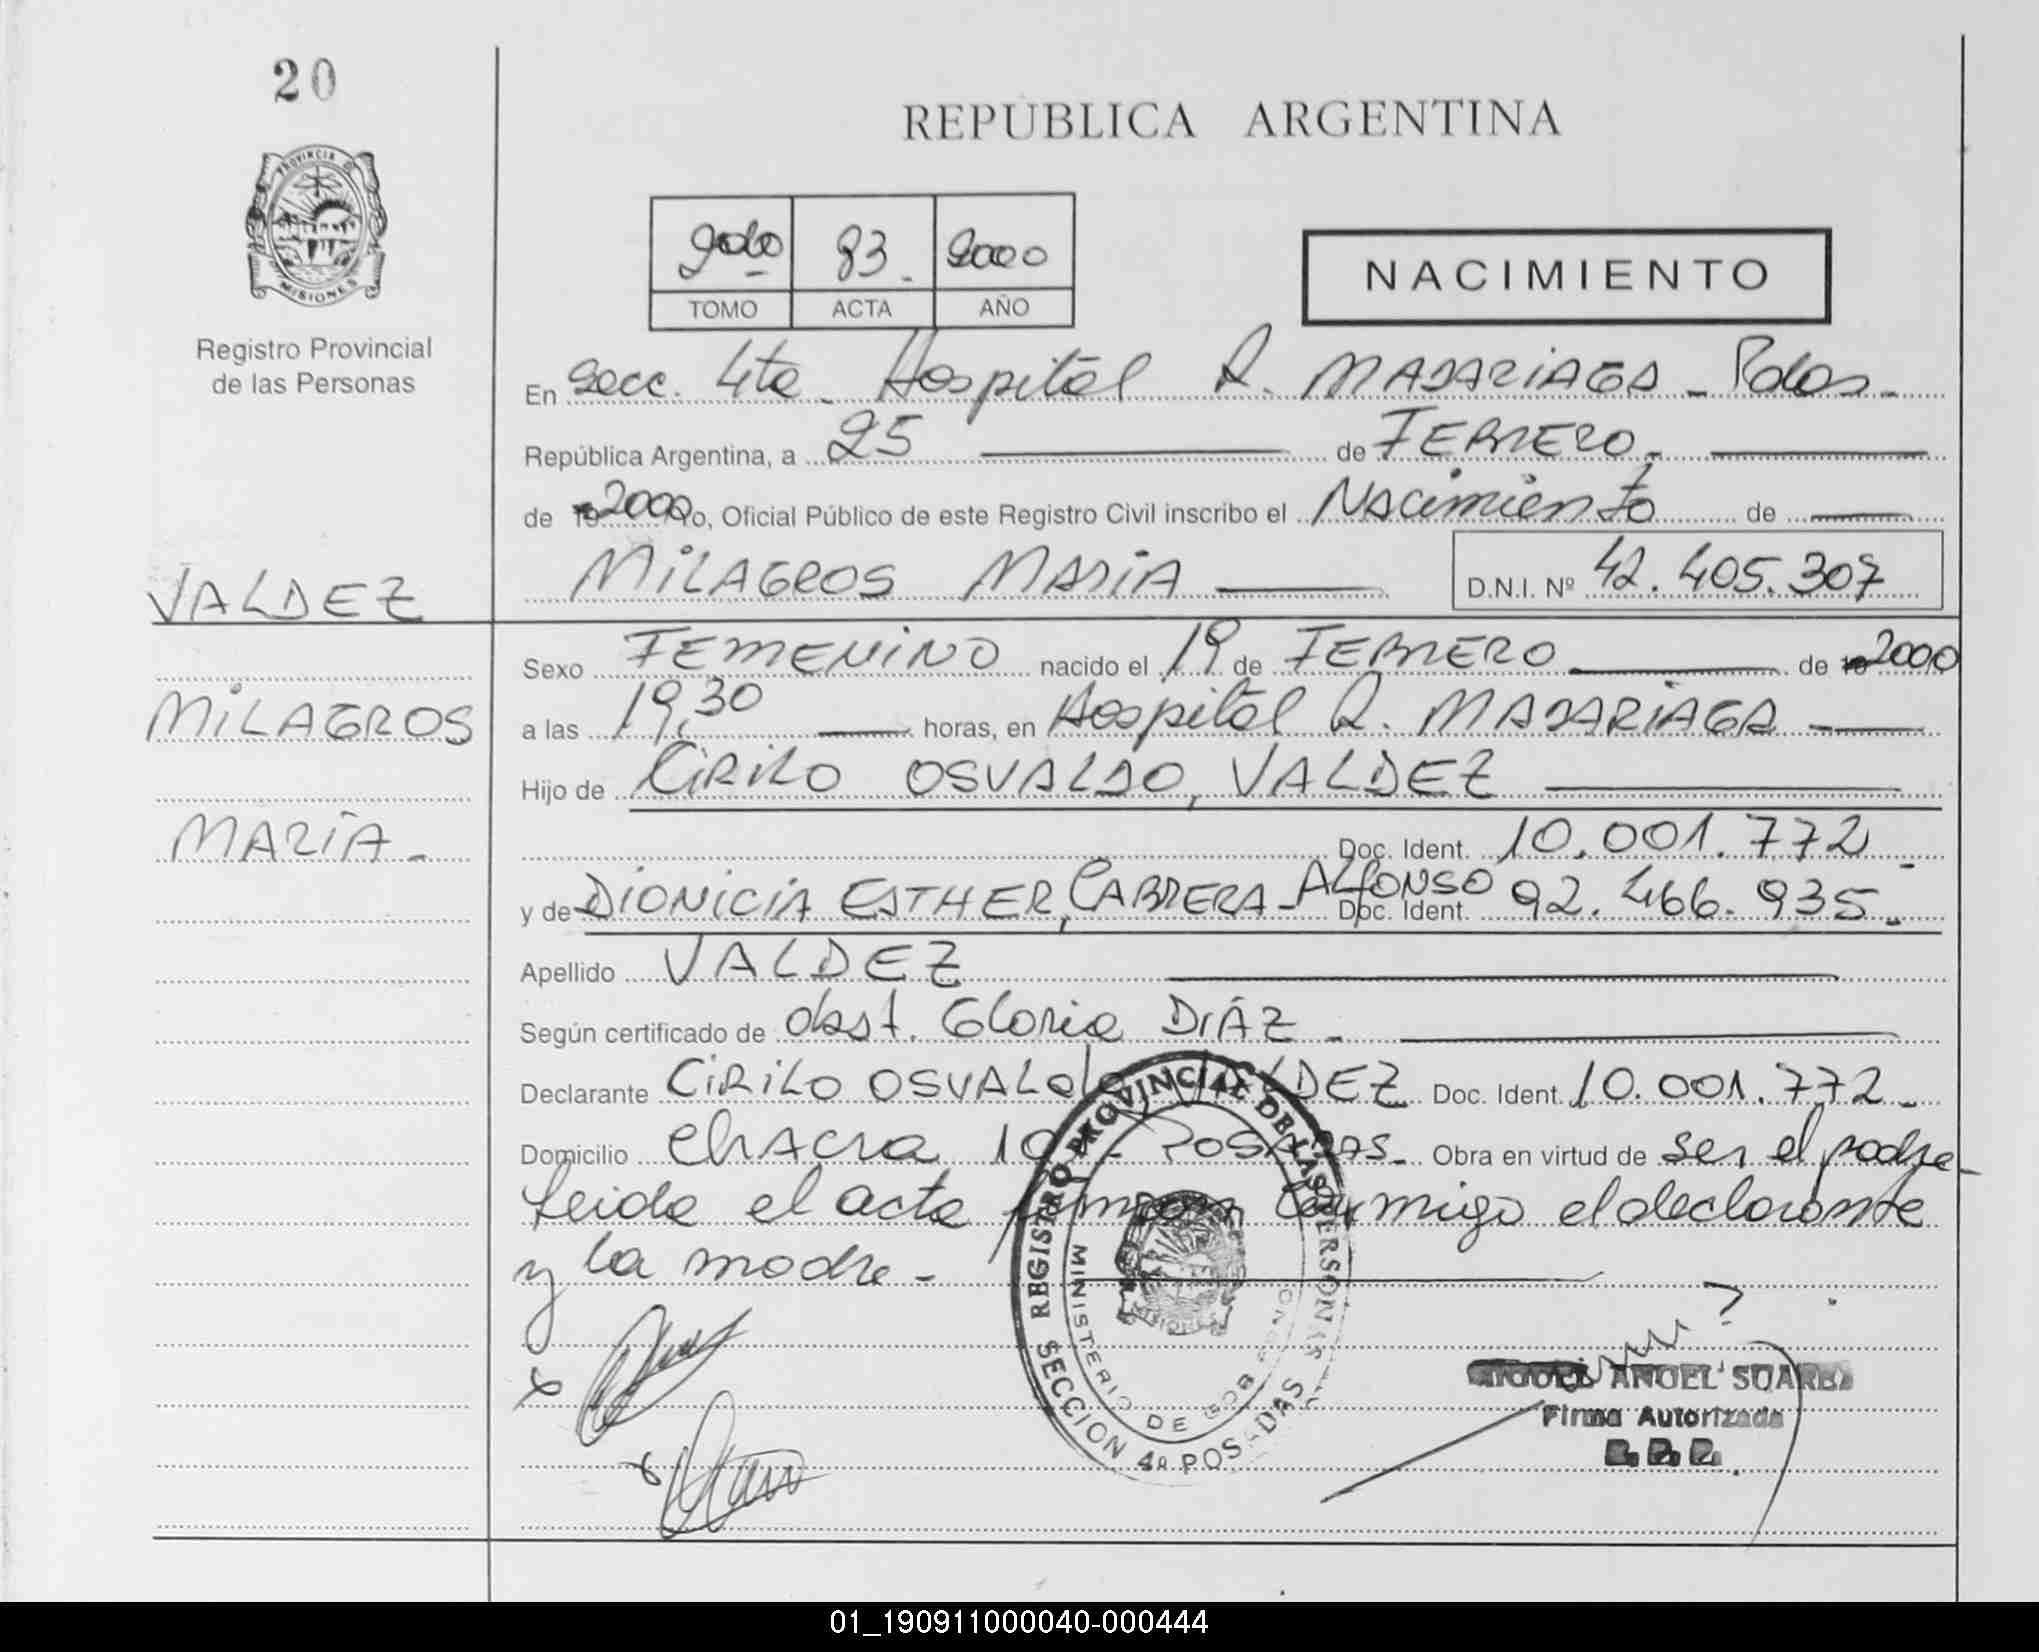 20
PROVINCIA DE
MISIONES
Registro Provincial
de las Personas
REPUBLICA ARGENTINA
83 2000
TOMO ACTA AÑO
NACIMIENTO
En Secc. 4ta - Hospital R. MADARIAGA - Pdas -
República Argentina, a 25 de FEBRERO.
de 2000 yo, Oficial Público de este Registro Civil inscribo el Nacimiento de
MILAGROS MARIA D.N.I. Nº 42.405.307
VALDEZ
Sexo FEMENINO nacido el 19 de FEBRERO de 2000
MILAGROS
a las 19,30 horas, en Hospital R. MADARIAGA
Hijo de CIRILO OSVALDO, VALDEZ
MARIA -
Doc. Ident. 10.001.772 -
y de DIONICIA ESTHER, CABRERA - ALFONSO Doc. Ident. 92.466.935 -
Apellido VALDEZ
Según certificado de obst. Gloria DIAZ -
Declarante CIRILO OSVALDO VALDEZ Doc. Ident. 10.001.772 -
Domicilio CHACRA POSADAS - Obra en virtud de ser el padre -
Leida el acta firman conmigo el declarante
y la madre -
REGISTRO PROVINCIAL DE LAS PERSONAS
MINISTERIO DE GOBIERNO
SECCION 4a POSADAS
MIGUEL ANGEL SUAREZ
Firma Autorizada
01_190911000040-000444